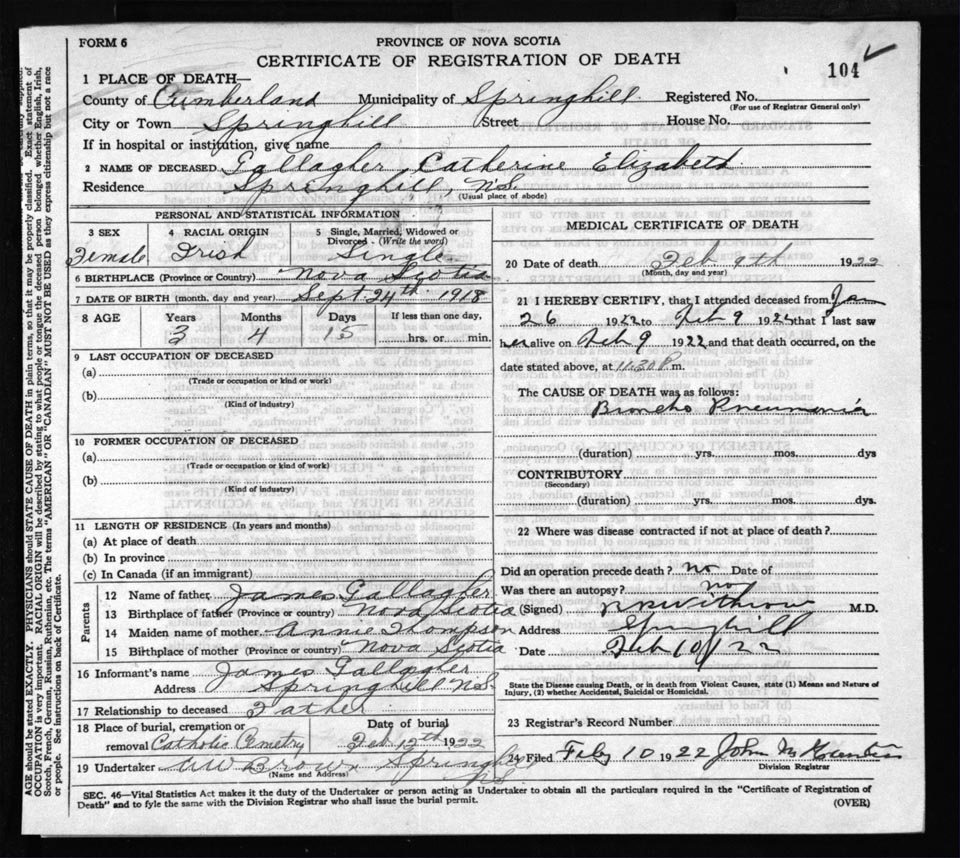 FORM 6
PROVINCE OF NOVA SCOTIA
CERTIFICATE OF REGISTRATION OF DEATH
104
1 PLACE OF DEATH—
County of Cumberland Municipality of Springhill Registered No.
(For use of Registrar General only)
City or Town Springhill Street House No.
If in hospital or institution, give name
2 NAME OF DECEASED Gallagher, Catherine Elizabeth
Residence Springhill, N.S.
(Usual place of abode)
PERSONAL AND STATISTICAL INFORMATION
3 SEX 4 RACIAL ORIGIN 5 Single, Married, Widowed or Divorced - (Write the word)
Female Irish Single
6 BIRTHPLACE (Province or Country) Nova Scotia
7 DATE OF BIRTH (month, day and year) Sept. 24th 1918
8 AGE Years Months Days If less than one day,
3 4 15 hrs. or min.
9 LAST OCCUPATION OF DECEASED
(a)
(Trade or occupation or kind or work)
(b)
(Kind of industry)
10 FORMER OCCUPATION OF DECEASED
(a)
(Trade or occupation or kind of work)
(b)
(Kind of industry)
11 LENGTH OF RESIDENCE (In years and months)
(a) At place of death
(b) In province
(c) In Canada (if an immigrant)
Parents
12 Name of father James Gallagher
13 Birthplace of father (Province or country) Nova Scotia
14 Maiden name of mother Annie Thompson
15 Birthplace of mother (Province or country) Nova Scotia
16 Informant's name James Gallagher
Address Springhill N.S.
17 Relationship to deceased Father
18 Place of burial, cremation or removal Catholic Cemetry
Date of burial Feb 12th 1922
19 Undertaker W Brown Springhill
N.S.
(Name and Address)
MEDICAL CERTIFICATE OF DEATH
20 Date of death Feb 9th 1922
(Month, day and year)
21 I HEREBY CERTIFY, that I attended deceased from Jan
26 1922 to Feb 9 1922 that I last saw
her alive on Feb 9 1922 and that death occurred, on the
date stated above, at 11.30 P. m.
The CAUSE OF DEATH was as follows:
Broncho Pneumonia
(duration) yrs. mos. dys
CONTRIBUTORY
(Secondary)
(duration) yrs. mos. dys.
22 Where was disease contracted if not at place of death?
Did an operation precede death? no Date of
Was there an autopsy? no
(Signed) Withrow M.D.
Address Springhill
Date Feb 10/22
State the Disease causing Death, or in death from Violent Causes, state (1) Means and Nature of
Injury, (2) whether Accidental, Suicidal or Homicidal.
23 Registrar's Record Number
24 Filed Feby 10 1922 John M
Division Registrar
SEC. 46—Vital Statistics Act makes it the duty of the Undertaker or person acting as Undertaker to obtain all the particulars required in the "Certificate of Registration of
Death" and to fyle the same with the Division Registrar who shall issue the burial permit.
(OVER)
AGE should be stated EXACTLY. PHYSICIANS should STATE CAUSE OF DEATH in plain terms, so that it may be properly classified. Exact statement of
OCCUPATION is very important. RACIAL ORIGIN will be described by stating to what people or tongue the deceased person belonged, whether English, Irish,
Scotch, French, German, Russian, Ruthenian, etc. The terms "AMERICAN" OR "CANADIAN" MUST NOT BE USED as they express citizenship but not a race
or people. See instructions on back of Certificate.